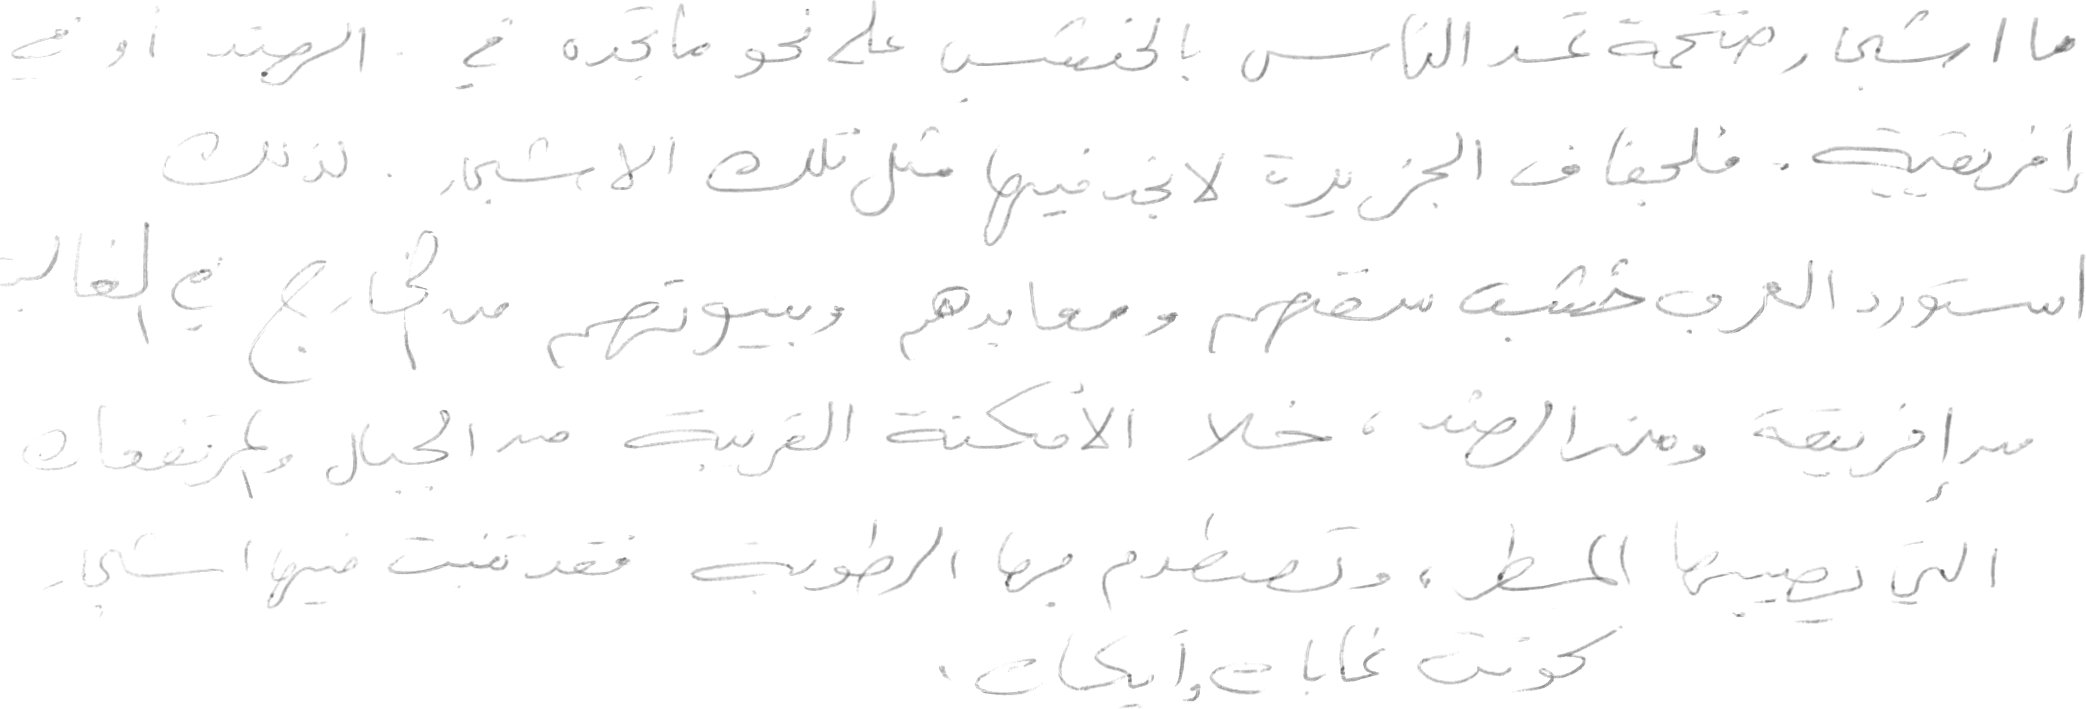 ما اشجار ضخمة تمد الناس بالخشب على نحو ما تجده في . الهند أو في
إفريقية . فلجفاف الجزيرة لا نجد فيها مثل تلك الاشجار . لذلك
استورد العرب خشب سقفهم ومعابدهم وبيوتهم من الخارج في الغالب
من إفريقية ومن الهند ، خلا الأمكنة القريبة من الجبال والمرتفعات
التي يصيبها المطر ، وتصطدم بها الرطوبة فقد تنبت فيها اشجار
كونت غابات وأيكات .